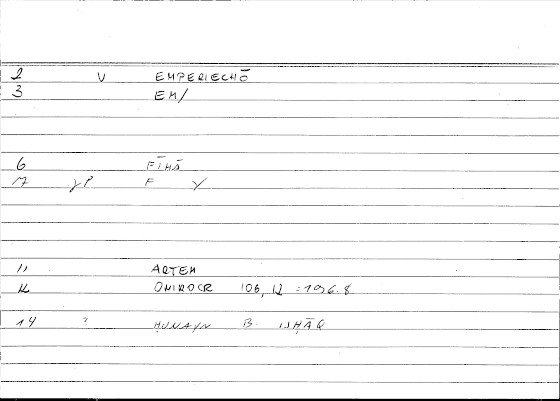 2 V EMPERIECHŌ
3 EM/
6 FĪHĀ
7 γP F Y
11 ARTEM
12 ONIROCR 106, 12 = 196.8
14 ? ḤUNAYN B. ISḤĀQ